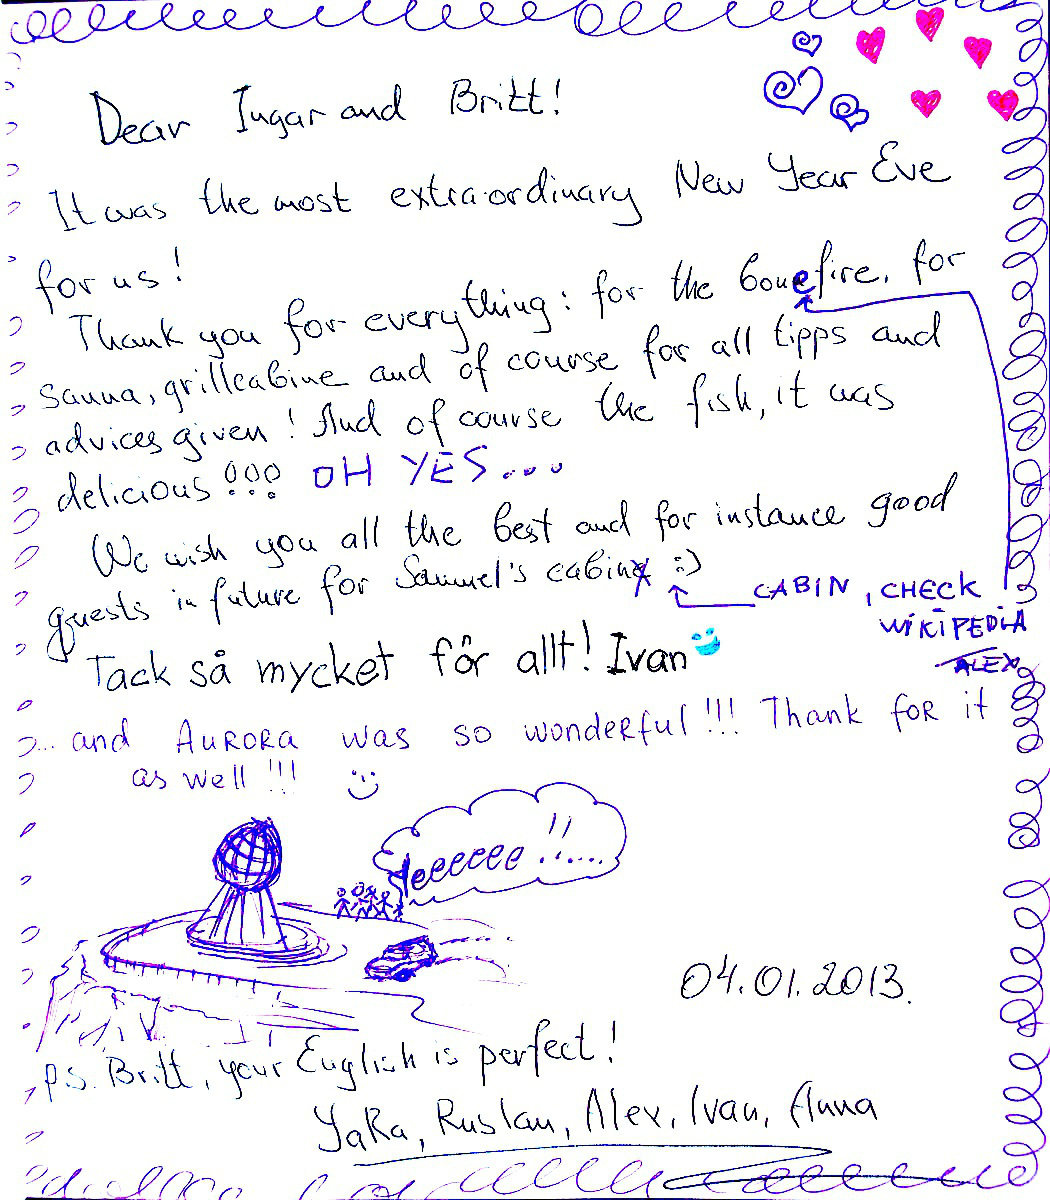 Dear Ingar and Britt!
It was the most extraordinary New Year Eve
for us!
Thank you for everything: for the bonefire, for
sauna, grillcabine and of course for all tipps and
advices given! And of course the fish, it was
delicious!!! OH YES...
We wish you all the best and for instance good
guests in future for Sammel's cabinx :)
CABIN, CHECK
WIKIPEDIA
ALEX
Tack så mycket för allt! Ivan
... and AURORA was so wonderful!!! Thank for it
as well!!!
Yeeeeee!!....
04.01.2013.
P.S. Britt, your English is perfect!
YaRa, Ruslan, Alex, Ivan, Anna